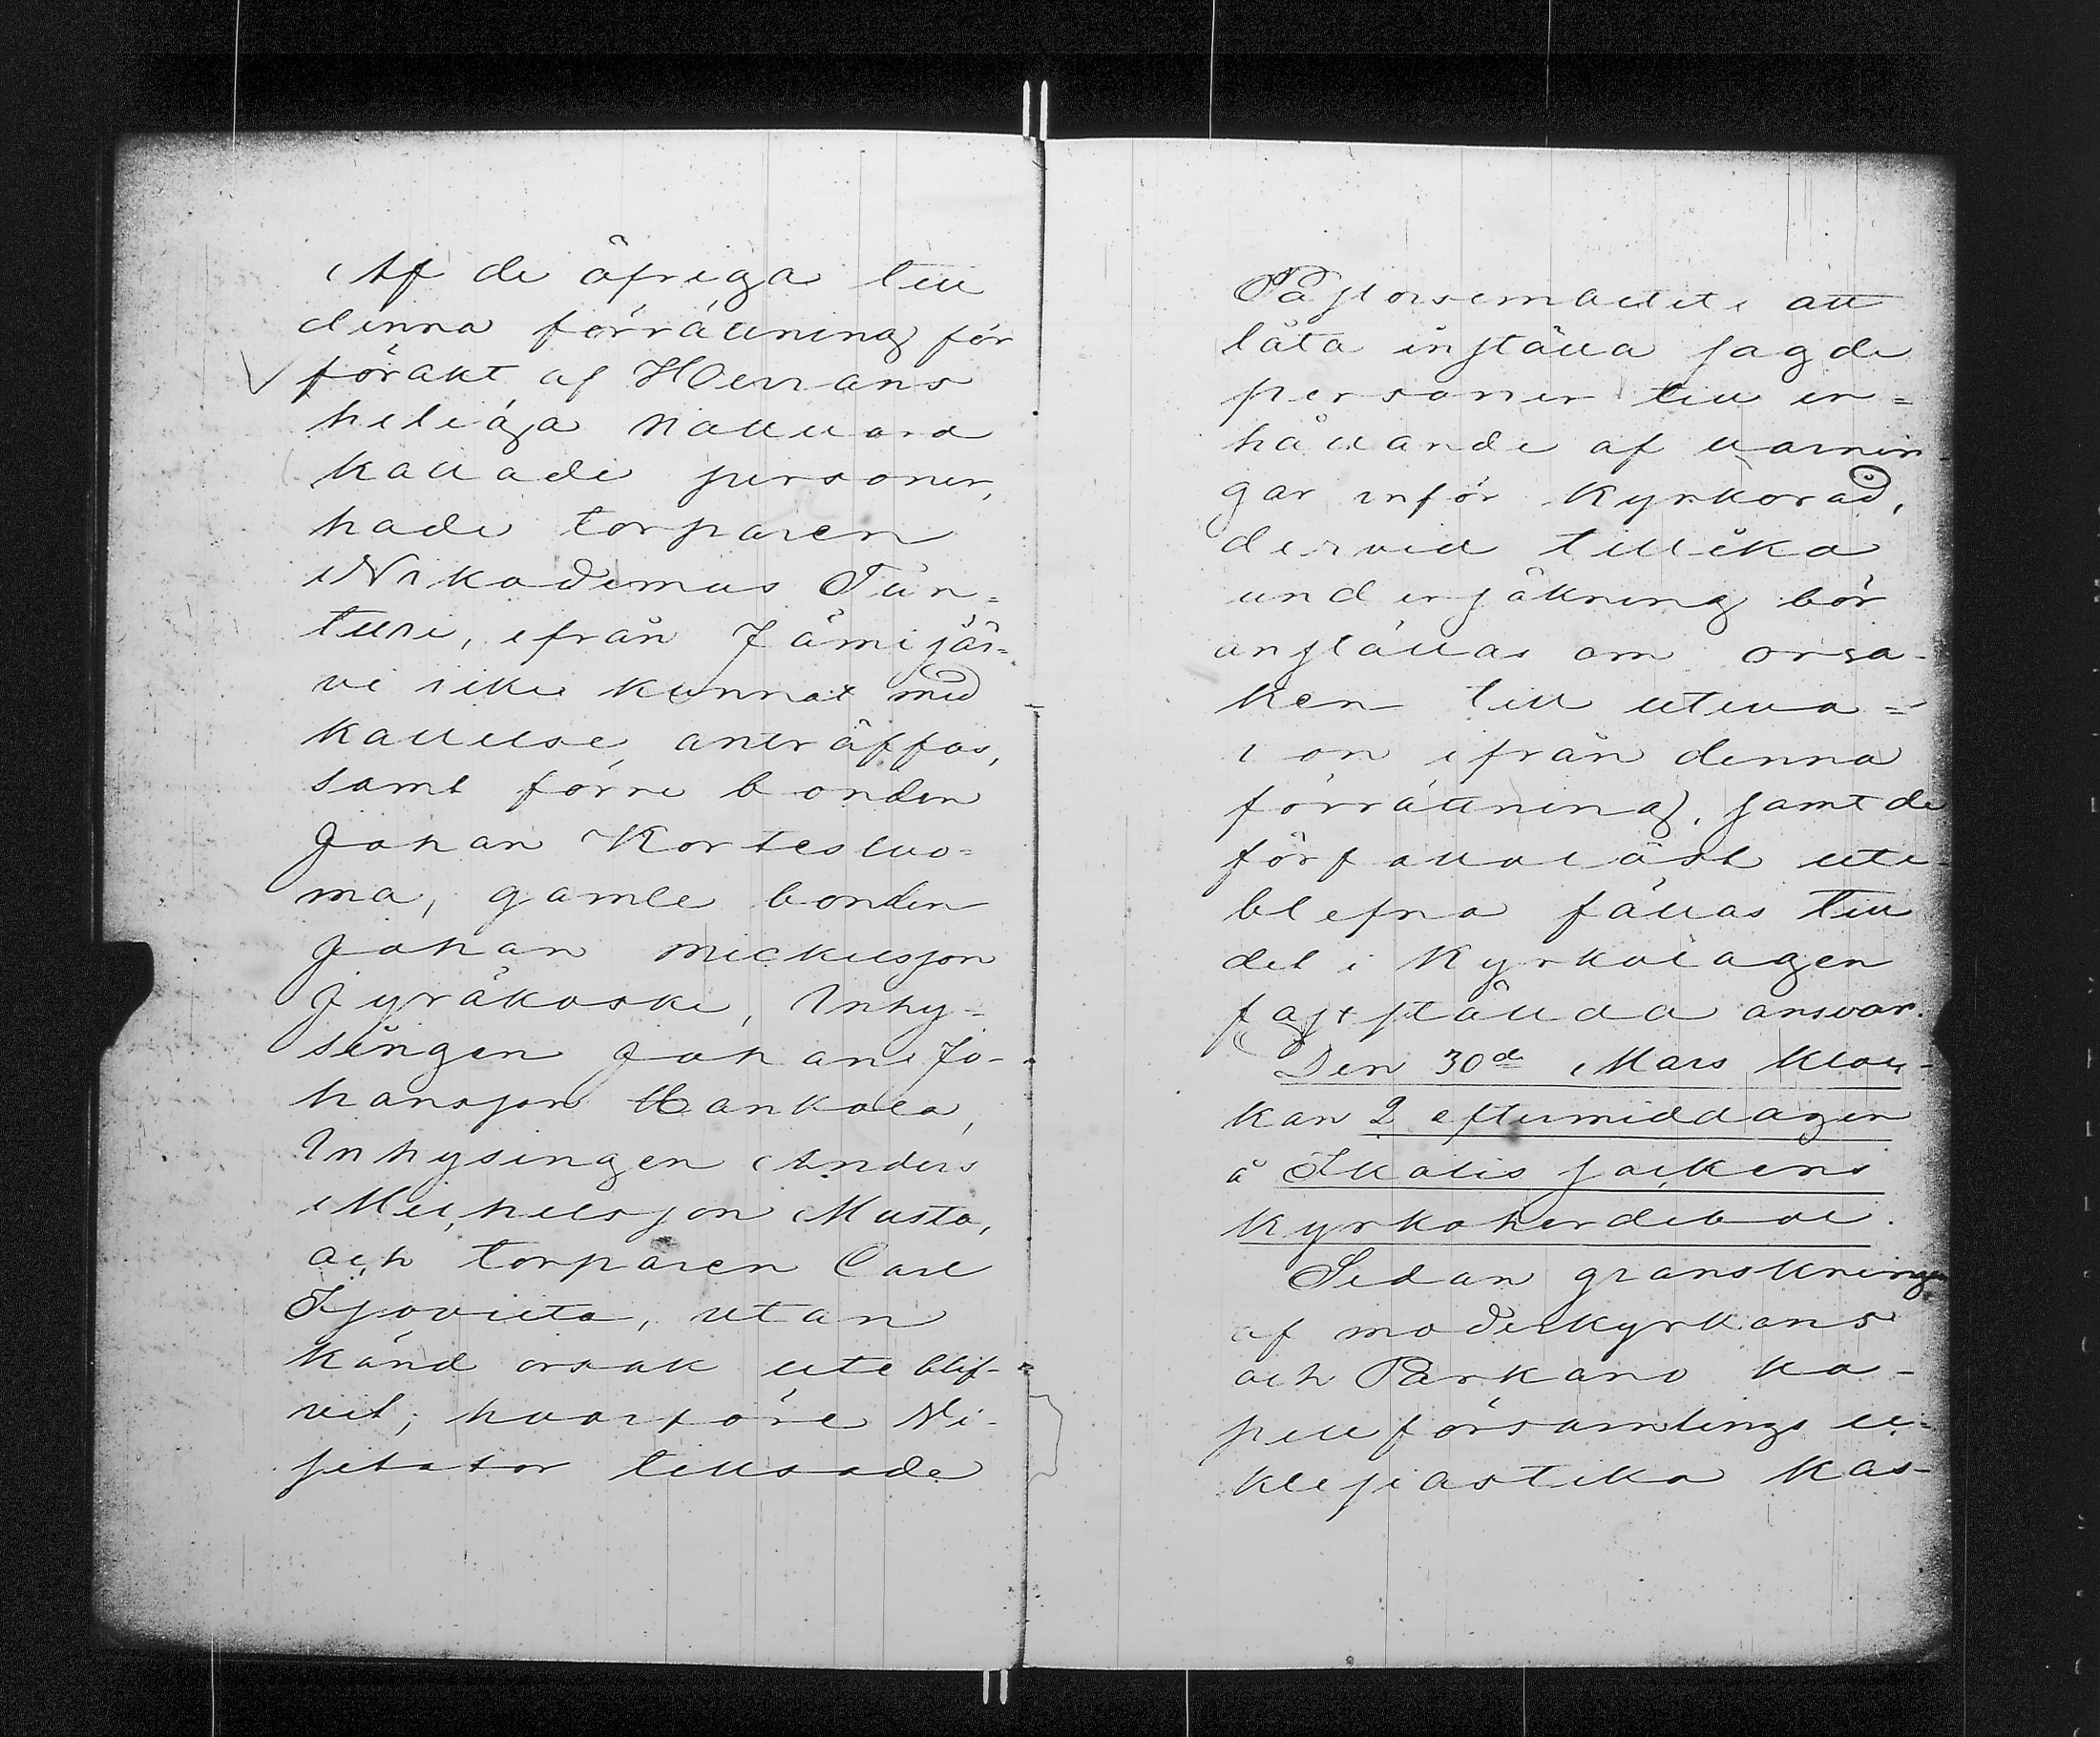 Af de öfriga till
denna förrättning för
förakt af HErrans
heliga Nattvard
kallade personer,
hade torparen
Nikodemus Tun=
turi, ifrån Jämijär=
vi icke kunnat med
kallelse anträffas,
samt förre bonden
Johan Kortesluo=
ma, gamle bonden
Johan Mickelsson
Jyräkoski, Inhy=
singen Johan Jo-
hansson Hankala,
Inhysingen Anders
Michelsson Musta,
och torparen Carl
Isoviita, utan
känd orsak uteblif-
vit; hvarföre Vi-
sitator tillsade
Pastorsembetet att
låta inställa sagde
personer till er=
hållande af varnin-
gar inför Kyrkoråd,
dervid tillika
undersökning bör
anställas om orsa-
ken till uteva=
ron ifrån denna
förrättning, samt de
förfallolöst ute-
blefna fällas till
det i Kyrkolagen
fastställda ansvar.
Den 30de Mars Kloc-
kan 2 eftermiddagen
å Ikalis sockens
Kyrkoherdebol.
Sedan granskning
af moderkyrkans
och Parkano ka-
pellförsamlings ec-
klesiastika kas-